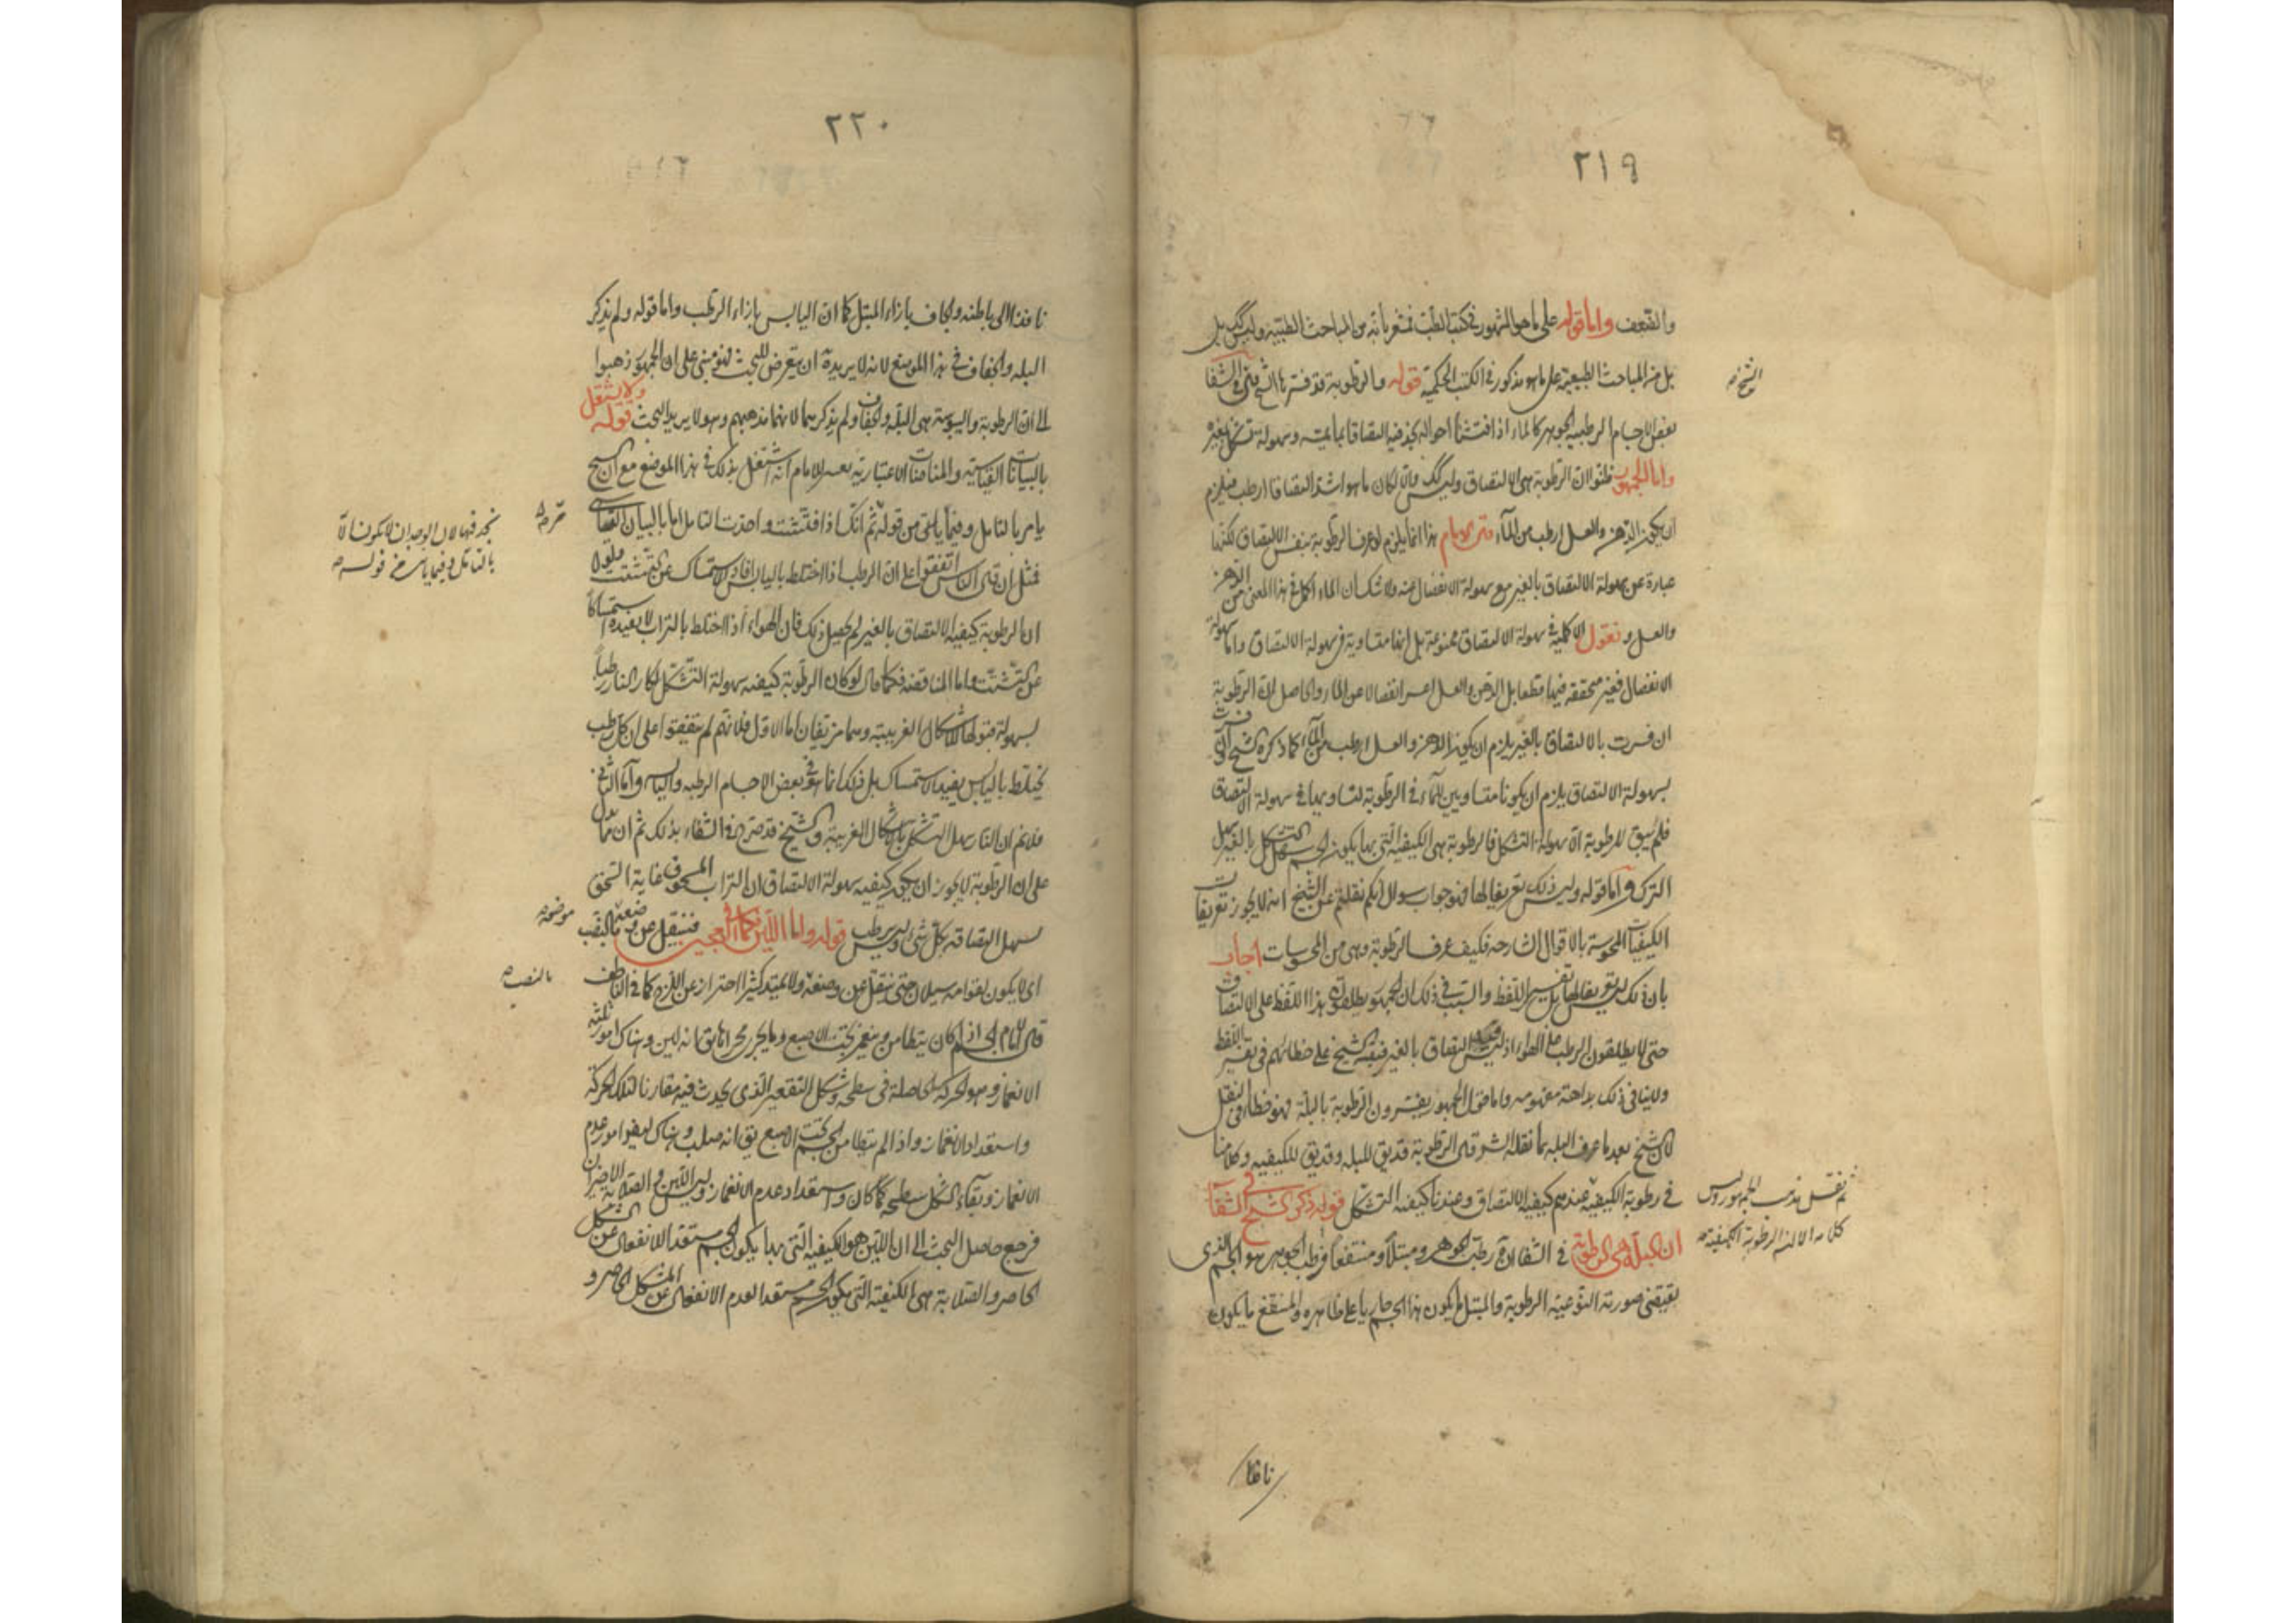 ٢١٩
والضعف واما قوله على ما هو المشهور فى كتب الطب فمشعر بانه من المباحث الطبية وليس كك بل
بل من المباحث الطبيعية على ما هو مذكور فى الكتب الحكمية قوله والرطوبة قد فسرها الشيخ فى الشفا
بعض الاجسام الرطبة الجوهر كالماء اذا فتشنا احواله نجد فيه التصاقا بما يمسه وسهولة تشكل بغيره
واما الجمهور فظنوا ان الرطوبة هى الالتصاق وليس كك والا لكان ما هو اشد التصاقا ارطب فيلزم
ان يكون الدهن والعسل ارطب من الماء قال الامام هذا انما يلزم لو عرف الرطوبة بنفس الالتصاق لكنها
عبارة عن سهولة الالتصاق بالغير مع سهولة الانفصال عنه ولا شك ان الماء اكمل فى هذا المعنى من الدهن
والعسل ونقول الاكملية فى سهولة الالتصاق ممنوعة بل انها متساوية فى سهولة الالتصاق واما سهولة
الانفصال فغير متحققة فيها قطعا بل الدهن والعسل اعسر انفصالا عن الماء والحاصل ان الرطوبة
ان فسرت بالالتصاق بالغير يلزم ان يكون الدهن والعسل ارطب من الماء كما ذكره الشيخ وان فسرت
بسهولة الالتصاق يلزم ان يكونا متساويين للماء فى الرطوبة لتساويها فى سهولة الالتصاق
فلم يبق للرطوبة الا سهولة التشكل فالرطوبة هى الكيفية التى بها يكون الجسم سهل التشكل بالغير سهل
الترك واما قوله وليس ذلك تعريفا لها فهو جواب سوال انكم نقلتم عن الشيخ انه لا يجوز تعريفات
الكيفيات المحسوسة بالاقوال الشارحة فكيف عرف الرطوبة وهى من المحسوسات اجاب
بان ذلك ليس تعريفا لها بل تفسير اللفظ والسبب فى ذلك ان الجمهور يطلقون هذا اللفظ على الالتصاق
حتى لا يطلقون الرطب على الهواء اذ ليس فيه التصاق بالغير فنبه الشيخ على خطائهم فى تفسير اللفظ
ولا ينافى ذلك بداهة مفهومه واما قول الجمهور يفسرون الرطوبة بالبلة فهو خطاء فى النقل
لان الشيخ بعد ما عرف البله بما نقله الش قال الرطوبة قد يق للبله وقد يق للكيفية وكلامنا
فى رطوبة الكيفية عندهم كيفية الالتصاق وعندنا كيفية التشكل قوله ذكر الشيخ فى الشفا
ان البلة هى الرطوبة فى الشفا ان رطب الجوهر ومبتلا ومنتقعا فرطب الجوهر هو الجسم الذى
يقتضى صورته النوعية الرطوبة والمبتل ما يكون هذا الجسم جاريا على ظاهره والمنتقع ما يكون
الشيخ
ثم نقل مذهب الجمهور وليس
كلامه الا فى الرطوبة الكيفية
نافذا
٢٢٠
نافذا الى باطنه والجاف بازاء المبتل كما ان اليابس بازاء الرطب واما قوله ولم يذكر
البله والجفاف فى هذا الموضع لانه لا يريد ان يتعرض للبحث فهو مبنى على ان الجمهور ذهبوا
الى ان الرطوبة واليبوسة هى البلة والجفاف ولم يذكرهما لانهما مذهبهم وهو لا يريد البحث قوله ولا يشتغل
بالبيانات القياسية والمناقضات الاعتبارية الامام انه اشتغل بذلك فى هذا الموضع مع ان الشيخ
يامر بالتامل وفيما ياتى من قوله ثم انك اذا فتشت واخذت التامل اما بالبيان القياسى
فمثل ان قال الناس اتفقوا على ان الرطب اذا اختلط باليابس افاد الاستمساك عن التشتت فلو لا
ان الرطوبة كيفية الالتصاق بالغير لم يحصل ذلك فان الهواء اذا اختلط بالتراب لا يفيده استمساكا
عن التشتت واما المناقضة فكما قال لو كان الرطوبة كيفية سهولة التشكل لكان النار رطبا
لسهولة قبولها للاشكال الغريبة وهما مزيفان اما الاول فلانهم لم يتفقوا على ان كل رطب
يختلط باليابس يفيد الاستمساك بل ذلك انما هو فى بعض الاجسام الرطبة واليابسة واما الثانى
فلانم ان النار سهل التشكل بالاشكال الغريبة والشيخ قد صرح فى الشفاء بذلك ثم ان مما يدل
على ان الرطوبة لا يجوز ان يكون كيفية سهولة الالتصاق ان التراب المسحوق غاية السحق
يسهل التصاقه بكل شئ وليس برطب قوله واما اللين فكما فى العجين فننتقل عن وضعه بالنصب
اى لا يكون لقوامه سيلان حتى ننتقل عن وضعه ولا يمتد كثيرا احتراز عن اللزج كما فى الناطف
قال الامام الجسم اذا كان يتطامن وينغمز تحت الاصبع وما يجرى مجراها يق انه لين وهناك امور ثلثة
الانغماز وهو الحركة الحاصلة فى سطحه وشكل التقعير الذى يحدث فيه مقارنا لتلك الحركة
واستعداد الانغماز واذا لم يتطامن الجسم تحت الاصبع يق انه صلب وهناك ايضا امور عدم
الانغماز وبقاء شكل سطحه كما كان واستعداد عدم الانغماز وليس اللين والصلابة الا الاخيران
فرجع حاصل البحث الى ان اللين هو الكيفية التى بها يكون الجسم مستعدا للانفعال عن المشكل
الحاصر والصلابة هى الكيفية التى يكون الجسم مستعدا لعدم الانفعال عن المشكل الحاصر و
بالتامل وفيما ياتى من قوله
موضعه
بالنصب